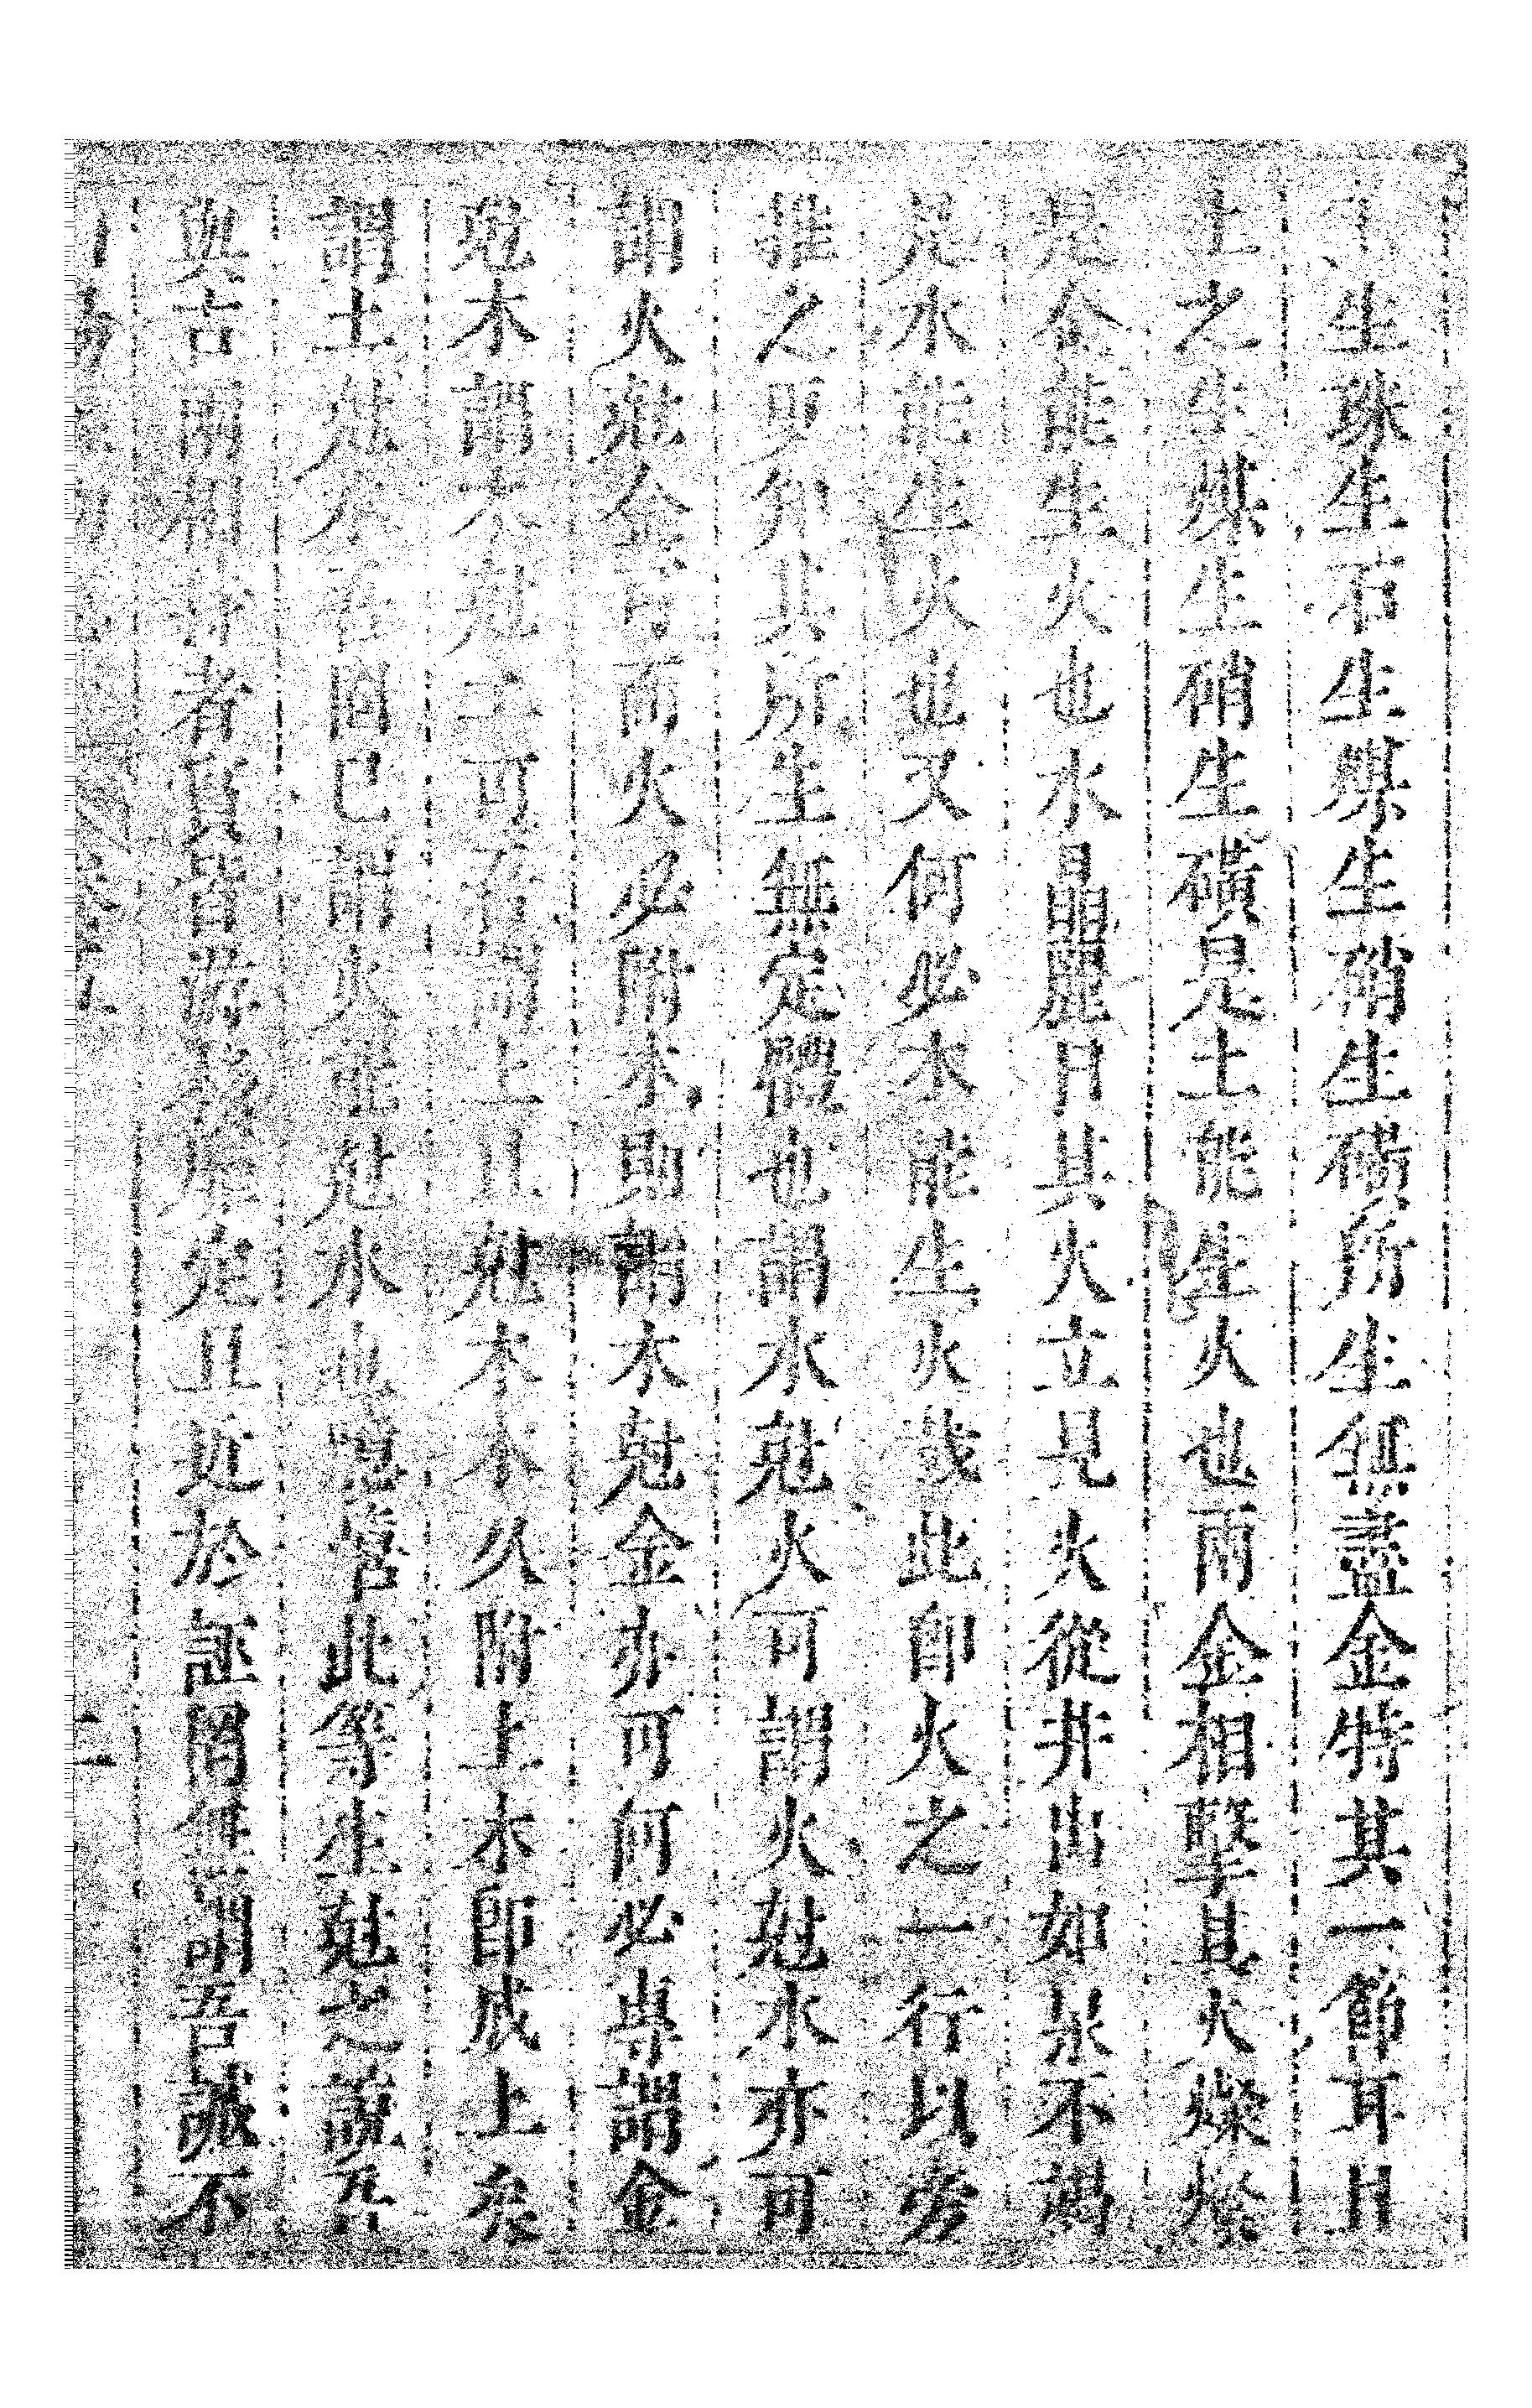 土生珠生石生煤生生硝生磺所生無盡金特其一節耳且
土之生煤生硝生磺是土能生火也兩金相擊其火燦燦
是金能生火也水晶照日其火立見火從井出如泉不竭
是水能生火也又何必木能生火哉此即火之一行以旁
推之更知其所生無定體也謂水尅火可謂火尅水亦可
謂火尅金可而火必附木則謂木尅金亦可何必專謂金
尅木謂木尅土可若謂土且尅木木久附土木即成土矣
謂土尅水者固已謂火能尅水
此等生尅之說吾
與古
者質皆游移
定且近於誣罔無謂吾誠不